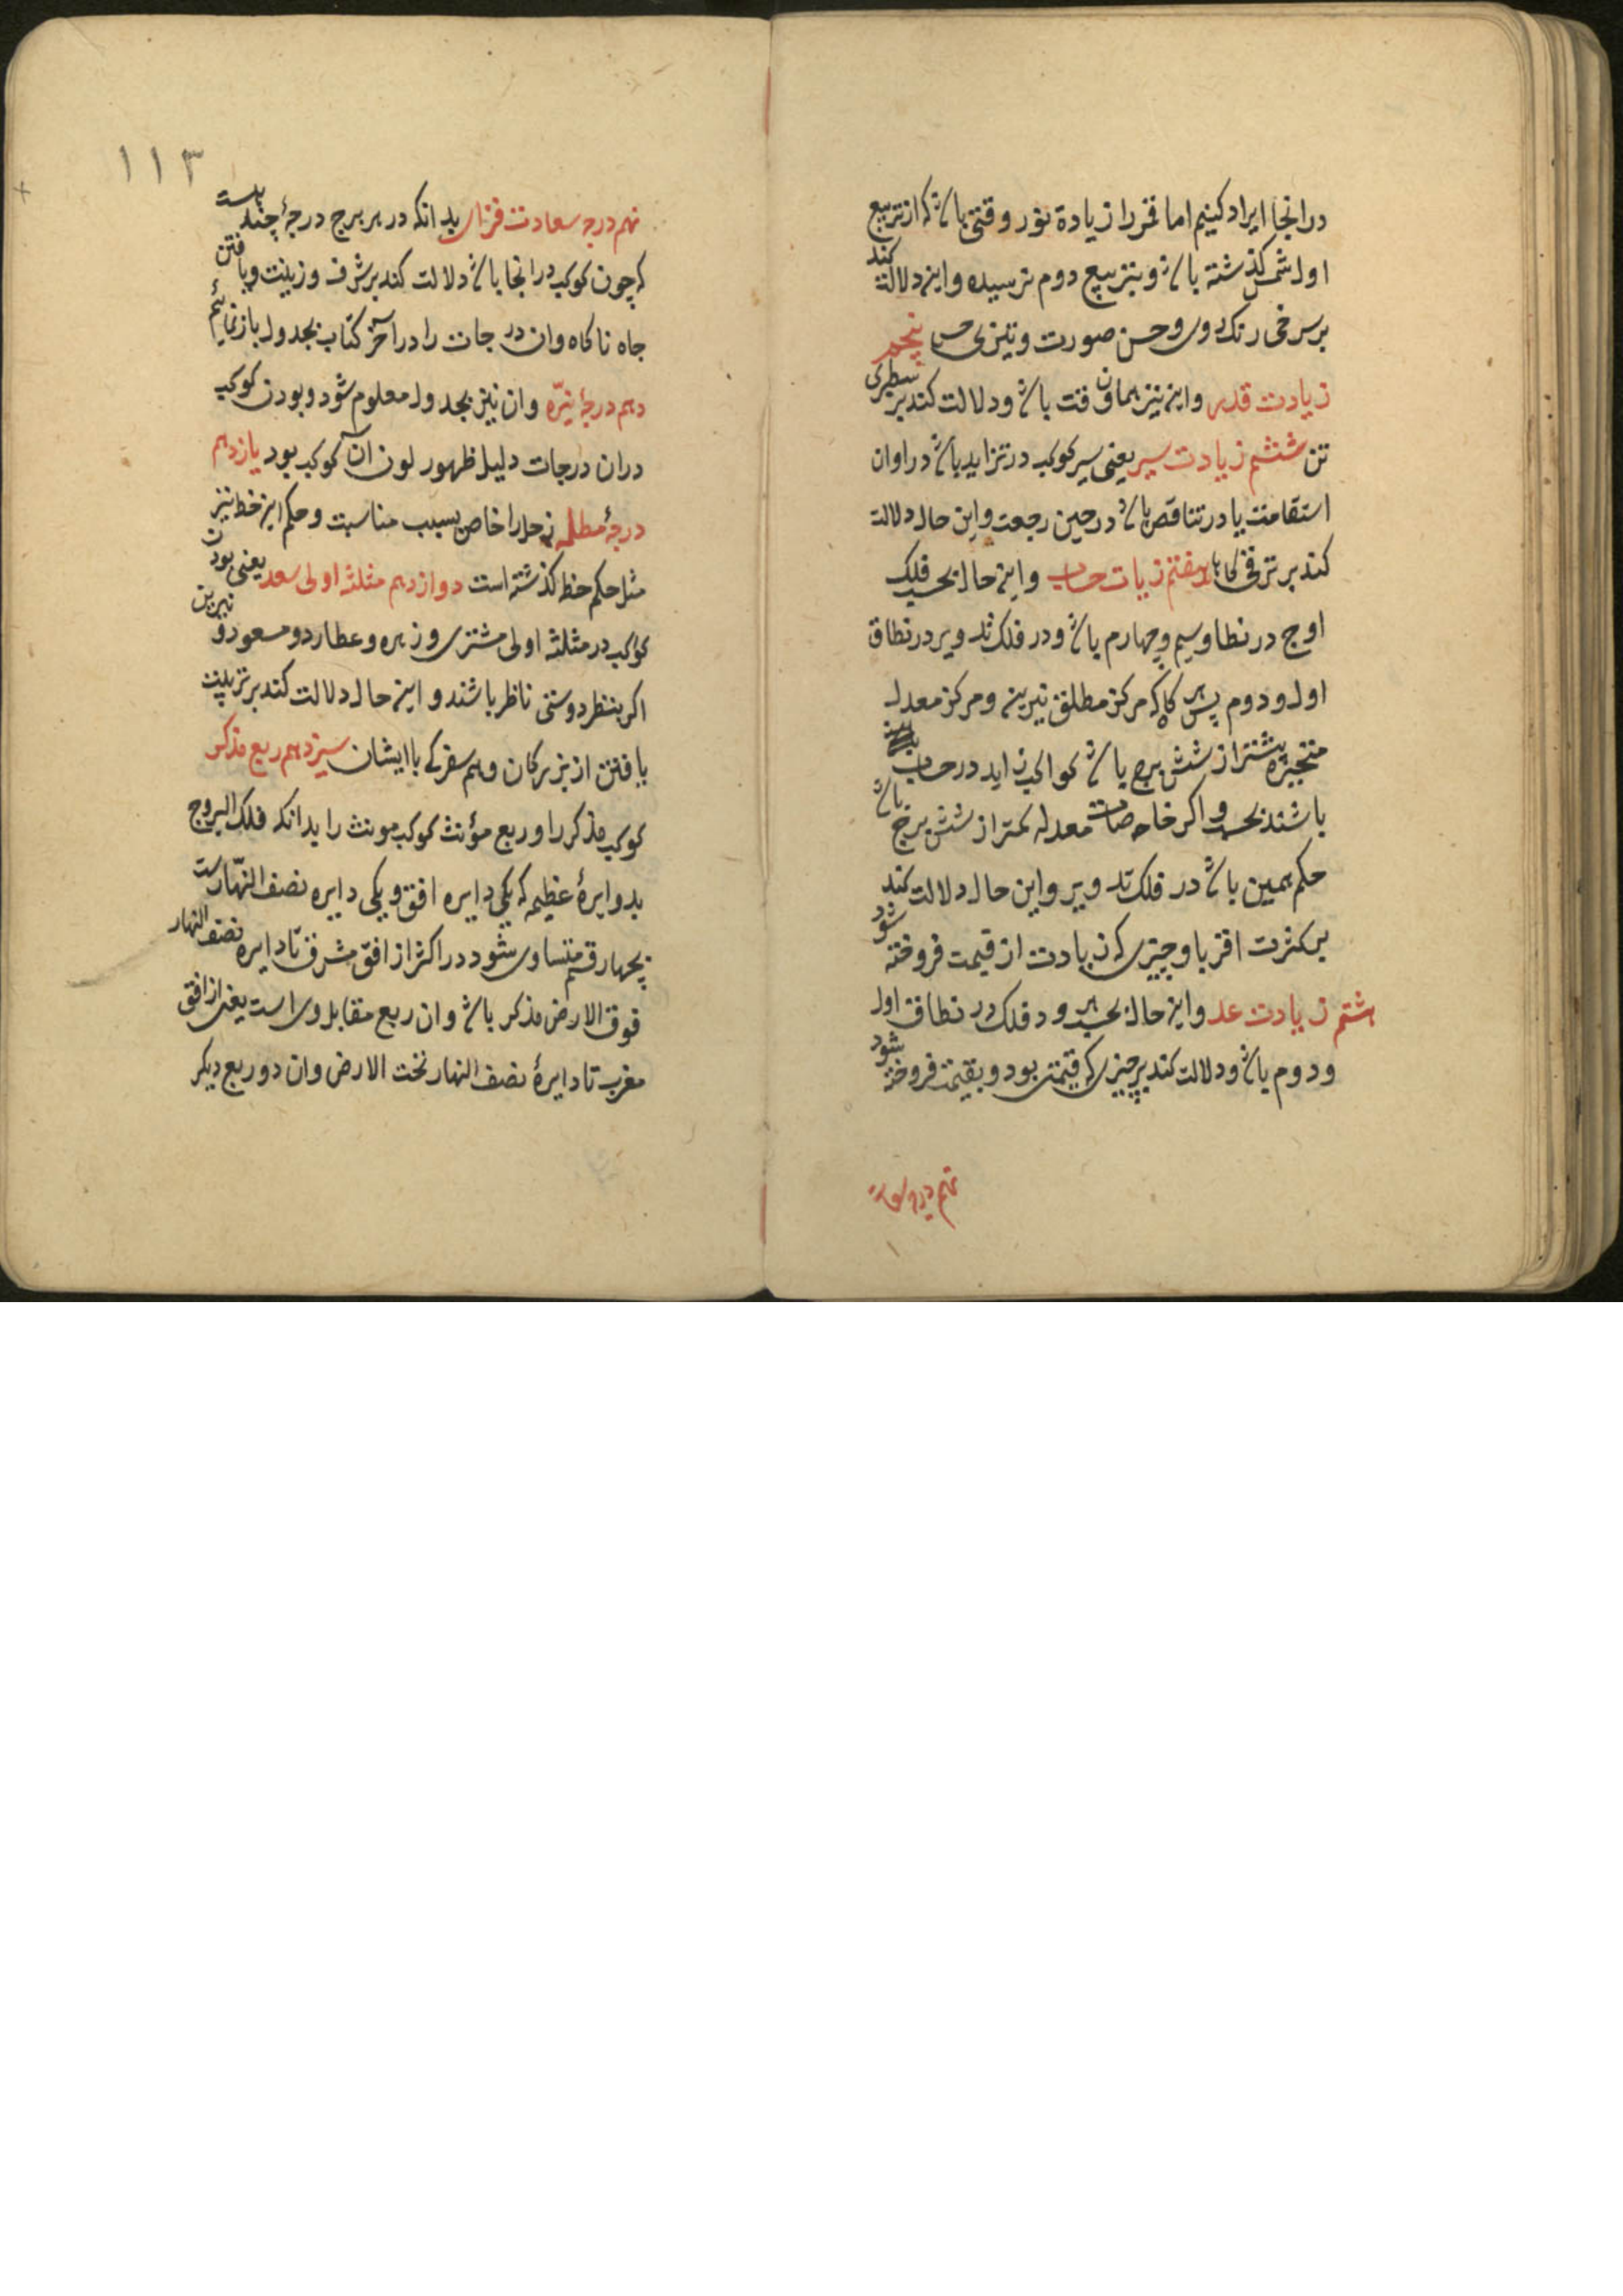 درانجا ایراد کنیم اما قمر را زیادة نور وقتی باشد که از تربیع
اول شمس گذشته باشد و بتربیع دوم نرسیده واین دلالت کند
بر سرخی رنک روی وحسن صورت وتیزی حس پنجم
زیادت قدر واین نیز همان وقت باشد ودلالت کند بر سطبری
تن ششم زیادت سیر یعنی سیر کوکب در تزاید باشد در اوان
استقامت یا در تناقص باشد در حین رجعت واین حال دلالت
کند بر ترقی کارها هفتم زیادت حساب واین حال بحسب فلک
اوج در نطاق سیم وچهارم باشد ودر فلک تدویر در نطاق
اول ودوم پس هر کاه که مرکز مطلق نیرین ومرکز معدل
متحیره بیشتر از شش برج باشد کواکب زاید در حساب
باشند بحسب و اکر خاصه معدله کمتر از شش برج باشد
حکم همین باشد در فلک تدویر واین حال دلالت کند
بر کثرت اقربا وچیزی که زیادت از قیمت فروخته شود
هشتم زیادت عدد واین حال بحسب هر دو فلک در نطاق اول
ودوم باشد ودلالت کند بر چیزی که قیمتی بود وبقیمت فروخته شود
نهم درجه سعادت
۱۱۳
نهم درجه سعادت فزای بدانکه در هر برج درجهٔ چند است
که چون کوکب درانجا باشد دلالت کند بر شرف وزینت ویافتن
جاه ناکاه وان درجات را در آخر کتاب بجدول باز نمائیم
دهم درجهٔ نیّره وان نیز بجدول معلوم شود وبودن کوکب
دران درجات دلیل ظهور لون آن کوکب بود یازدهم
درجهٔ مظلمه زحل را خاص بسبب مناسبت وحکم این خط نیز
مثل حکم خط گذشته است دوازدهم مثلثه اولی سعد یعنی بودن
کوکب در مثلثه اولی مشتری وزهره وعطارد و مسعود و نیرین
اکر بنظر دوستی ناظر باشند و این حال دلالت کند بر تربیت
یافتن از بزرکان وهم سفرکی باایشان سیزدهم ربع مذکر
کوکب مذکر را وربع مؤنث کوکب مونث را بدانکه فلک البروج
بدوایرهٔ عظیمه که یکی دایره افق ویکی دایره نصف النهارست
بچهار قسم متساوی شود در اکثر از افق مشرق تا دایره نصف النهار
فوق الارض مذکر باشد وان ربع مقابل وی است یعنی از افق
مغرب تا دایرهٔ نصف النهار تحت الارض وان دو ربع دیکر